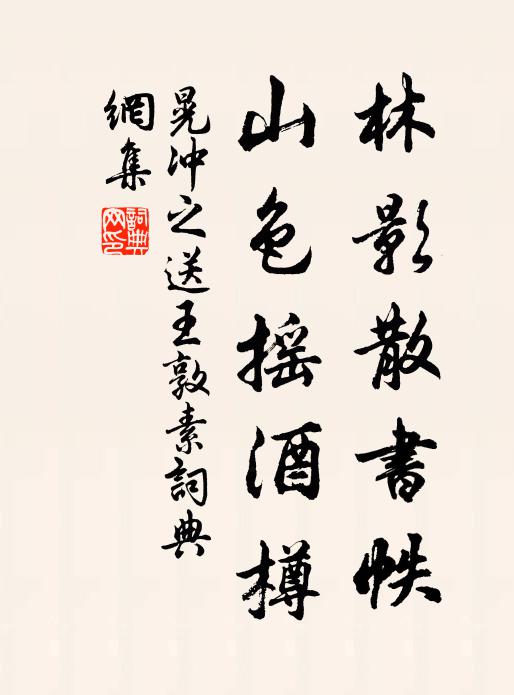 林影散書帙
山色摇酒樽
晁冲之送王敦素詞典
網集
詞典網印